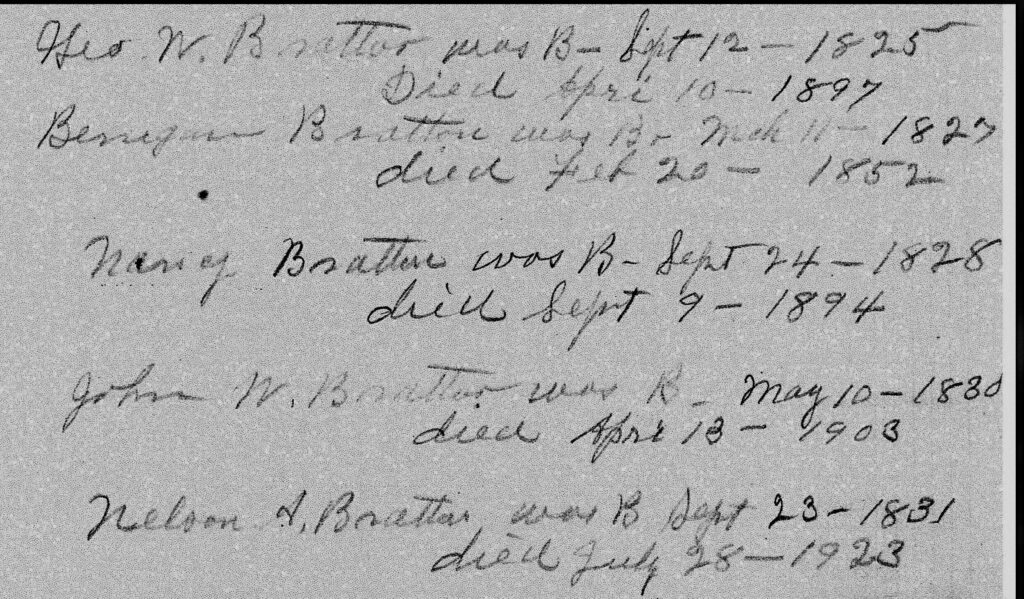 Geo W. Bratton was B- Sept 12 - 1825
Died Apri 10 - 1897
Benigan Bratton was B- Mch 11 - 1827
died Feb 20 - 1852
Nancy Bratton was B- Sept 24 - 1828
died Sept 9 - 1894
John W. Bratton was B - May 10 - 1830
died Apri 13 - 1903
Nelson A. Bratton was B Sept 23 - 1831
died July 28 - 1923